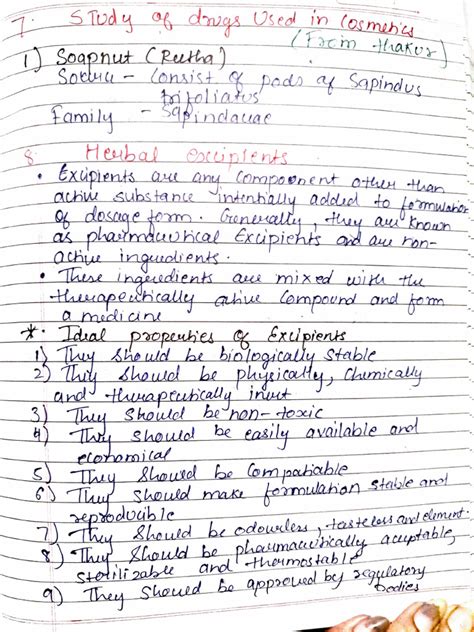 7. Study of drugs Used in Cosmetics
(From thakur)
1) Soapnut (Reetha)
Source - Consist of pods of Sapindus
trifoliatus
Family - Sapindaceae
8. Herbal excipients
• Excipients are any component other than
active substance intentially added to formulation
of dosage form. Generally, they are known
as pharmaceutical Excipients and are non-
active ingredients.
• These ingredients are mixed with the
therapeutically active compound and form
a medicine
*. Ideal properties of Excipients
1) They should be biologically stable
2) They should be physically, chemically
and therapeutically inert
3) They should be non-toxic
4) They should be easily available and
economical
5) They should be Compatiable
6) They should make formulation stable and
reproducible
7) They should be odourless, tasteless and
8) They should be pharmaceutically acceptable,
sterilizable and thermostable
9) They should be approved by regulatory
bodies